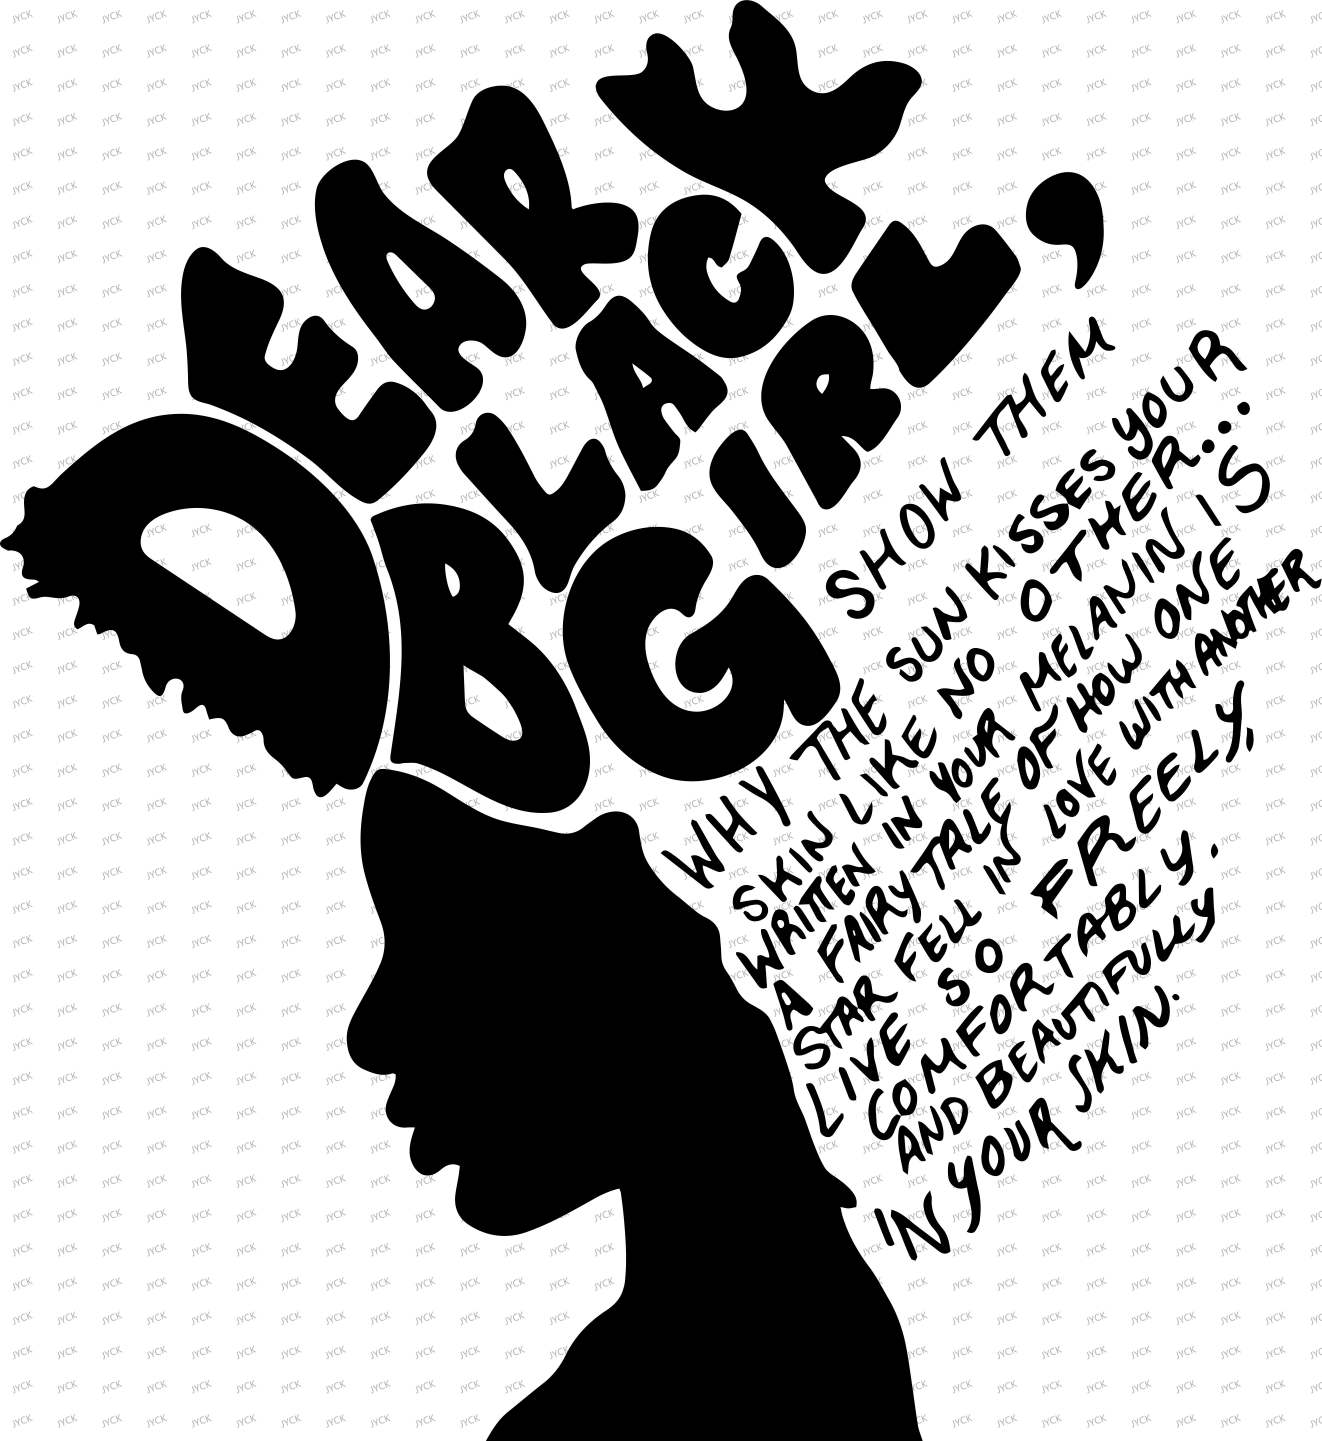 DEAR
BLACK
GIRL,
SHOW THEM
WHY THE SUN KISSES YOUR
SKIN LIKE NO OTHER...
WRITTEN IN YOUR MELANIN IS
A FAIRYTALE OF HOW ONE
STAR FELL IN LOVE WITH ANOTHER
LIVE SO FREELY,
COMFORTABLY.
AND BEAUTIFULLY
IN YOUR SKIN.
JYCK